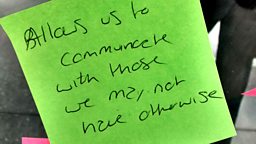 Allows us to
communcate
with those
we may not
have otherwise